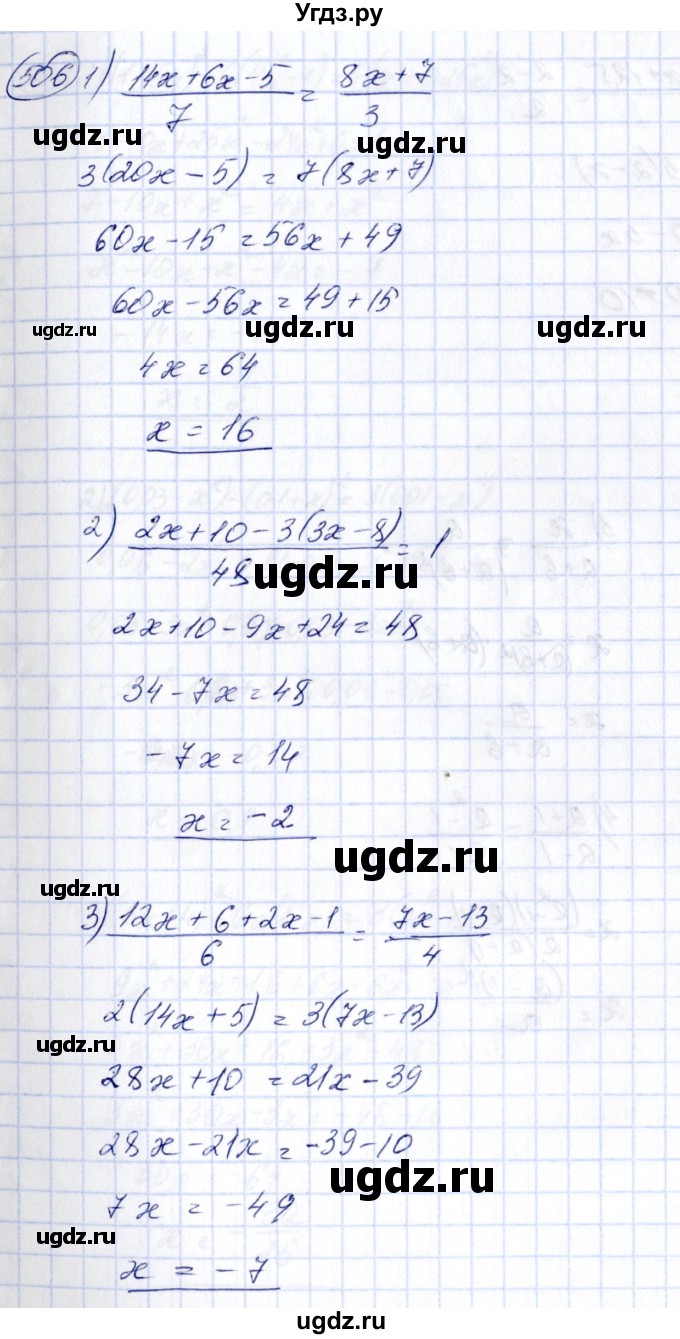 Угдз.ру
506 1) (14x+6x-5)/7 = (8x+7)/3
ugdz.ru ugdz.ru
3(20x-5) = 7(8x+7)
60x-15 = 56x+49
60x-56x = 49+15
ugdz.ru ugdz.ru ugdz.ru
4x = 64
x = 16
2) (2x+10-3(3x-8))/48 = 1
ugdz.ru
2x+10-9x+24 = 48
34-7x = 48
-7x = 14
x = -2
ugdz.ru
ugdz.ru
3) (12x+6+2x-1)/6 = (7x-13)/4
2(14x+5) = 3(7x-13)
ugdz.ru
28x+10 = 21x-39
28x-21x = -39-10
ugdz.ru
7x = -49
ugdz.ru
x = -7
ugdz.ru